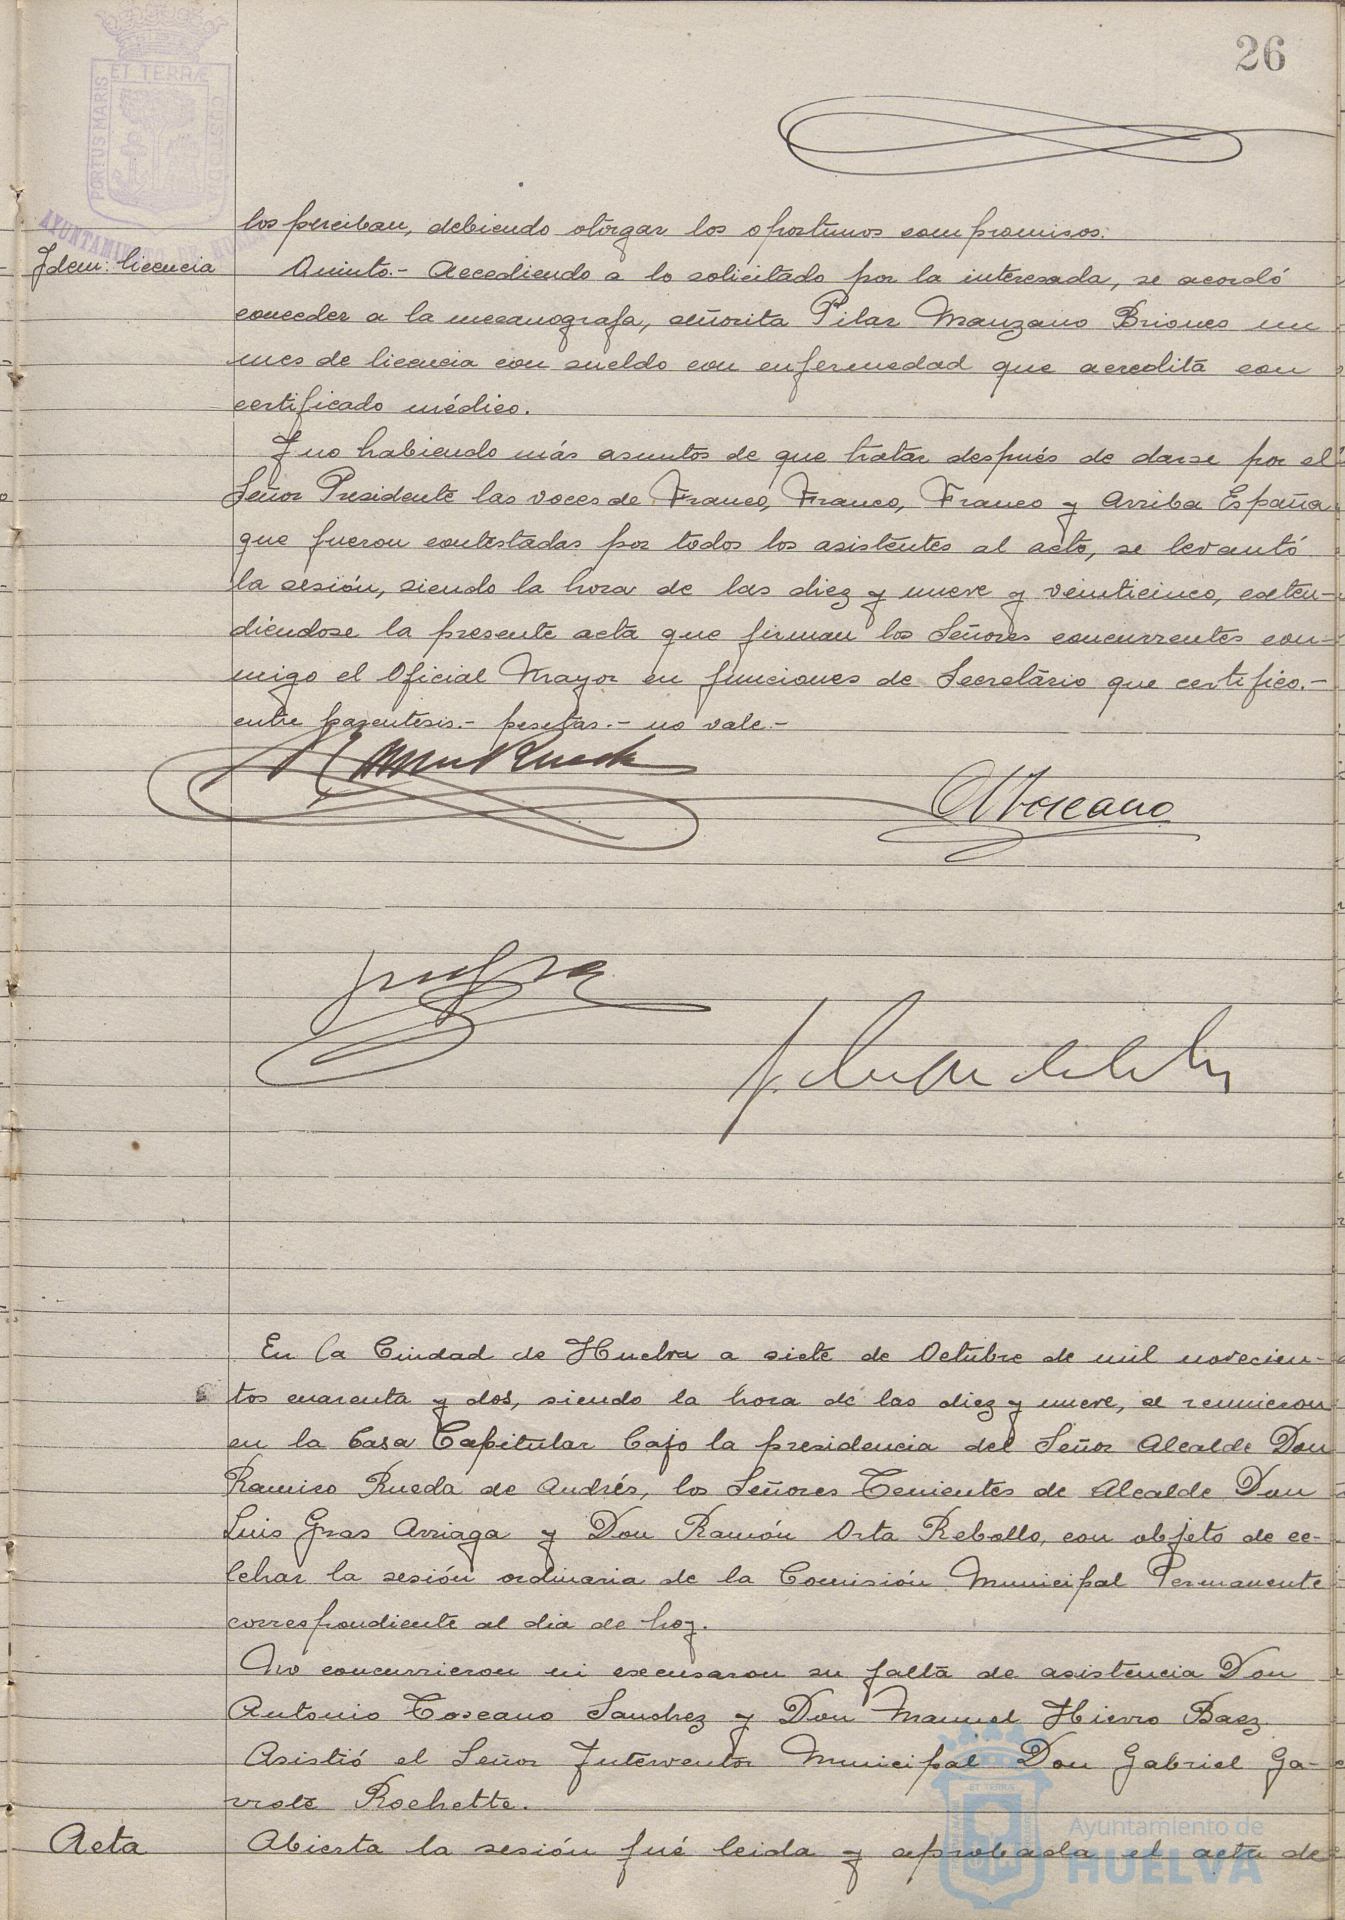 26
PORTUS MARIS ET TERRÆ CUSTODIA
AYUNTAMIENTO DE HUELVA
los perciban, debiendo otorgar los oportunos compromisos.
Idem: licencia
Quinto.- Accediendo a lo solicitado por la interesada, se acordó
conceder a la mecanografa, señorita Pilar Manzano Briones un
mes de licencia con sueldo con enfermedad que acredita con
certificado médico.
Y no habiendo más asuntos de que tratar después de darse por el
Señor Presidente las voces de Franco, Franco, Franco y Arriba España
que fueron contestadas por todos los asistentes al acto, se levantó
la sesión, siendo la hora de las diez y nueve y veinticinco, exten-
diéndose la presente acta que firman los Señores concurrentes con-
migo el Oficial Mayor en funciones de Secretario que certifico.-
entre parentesis.- pesetas.- no vale.-
Toscano
En la Ciudad de Huelva a siete de Octubre de mil novecien-
tos cuarenta y dos, siendo la hora de las diez y nueve, se reunieron
en la Casa Capitular bajo la presidencia del Señor Alcalde Don
Ramiro Rueda de Andrés, los Señores Tenientes de Alcalde Don
Luis Gras Arriaga y Don Ramón Orta Rebollo, con objeto de ce-
lebrar la sesión ordinaria de la Comisión Municipal Permanente
correspondiente al dia de hoy.
No concurrieron ni excusaron su falta de asistencia Don
Antonio Toscano Sanchez y Don Manuel Hierro Baez.
Asistió el Señor Interventor Municipal Don Gabriel Ga-
vrole Rochette.
Acta
Abierta la sesión fué leida y aprobada el acta de
Ayuntamiento de
HUELVA